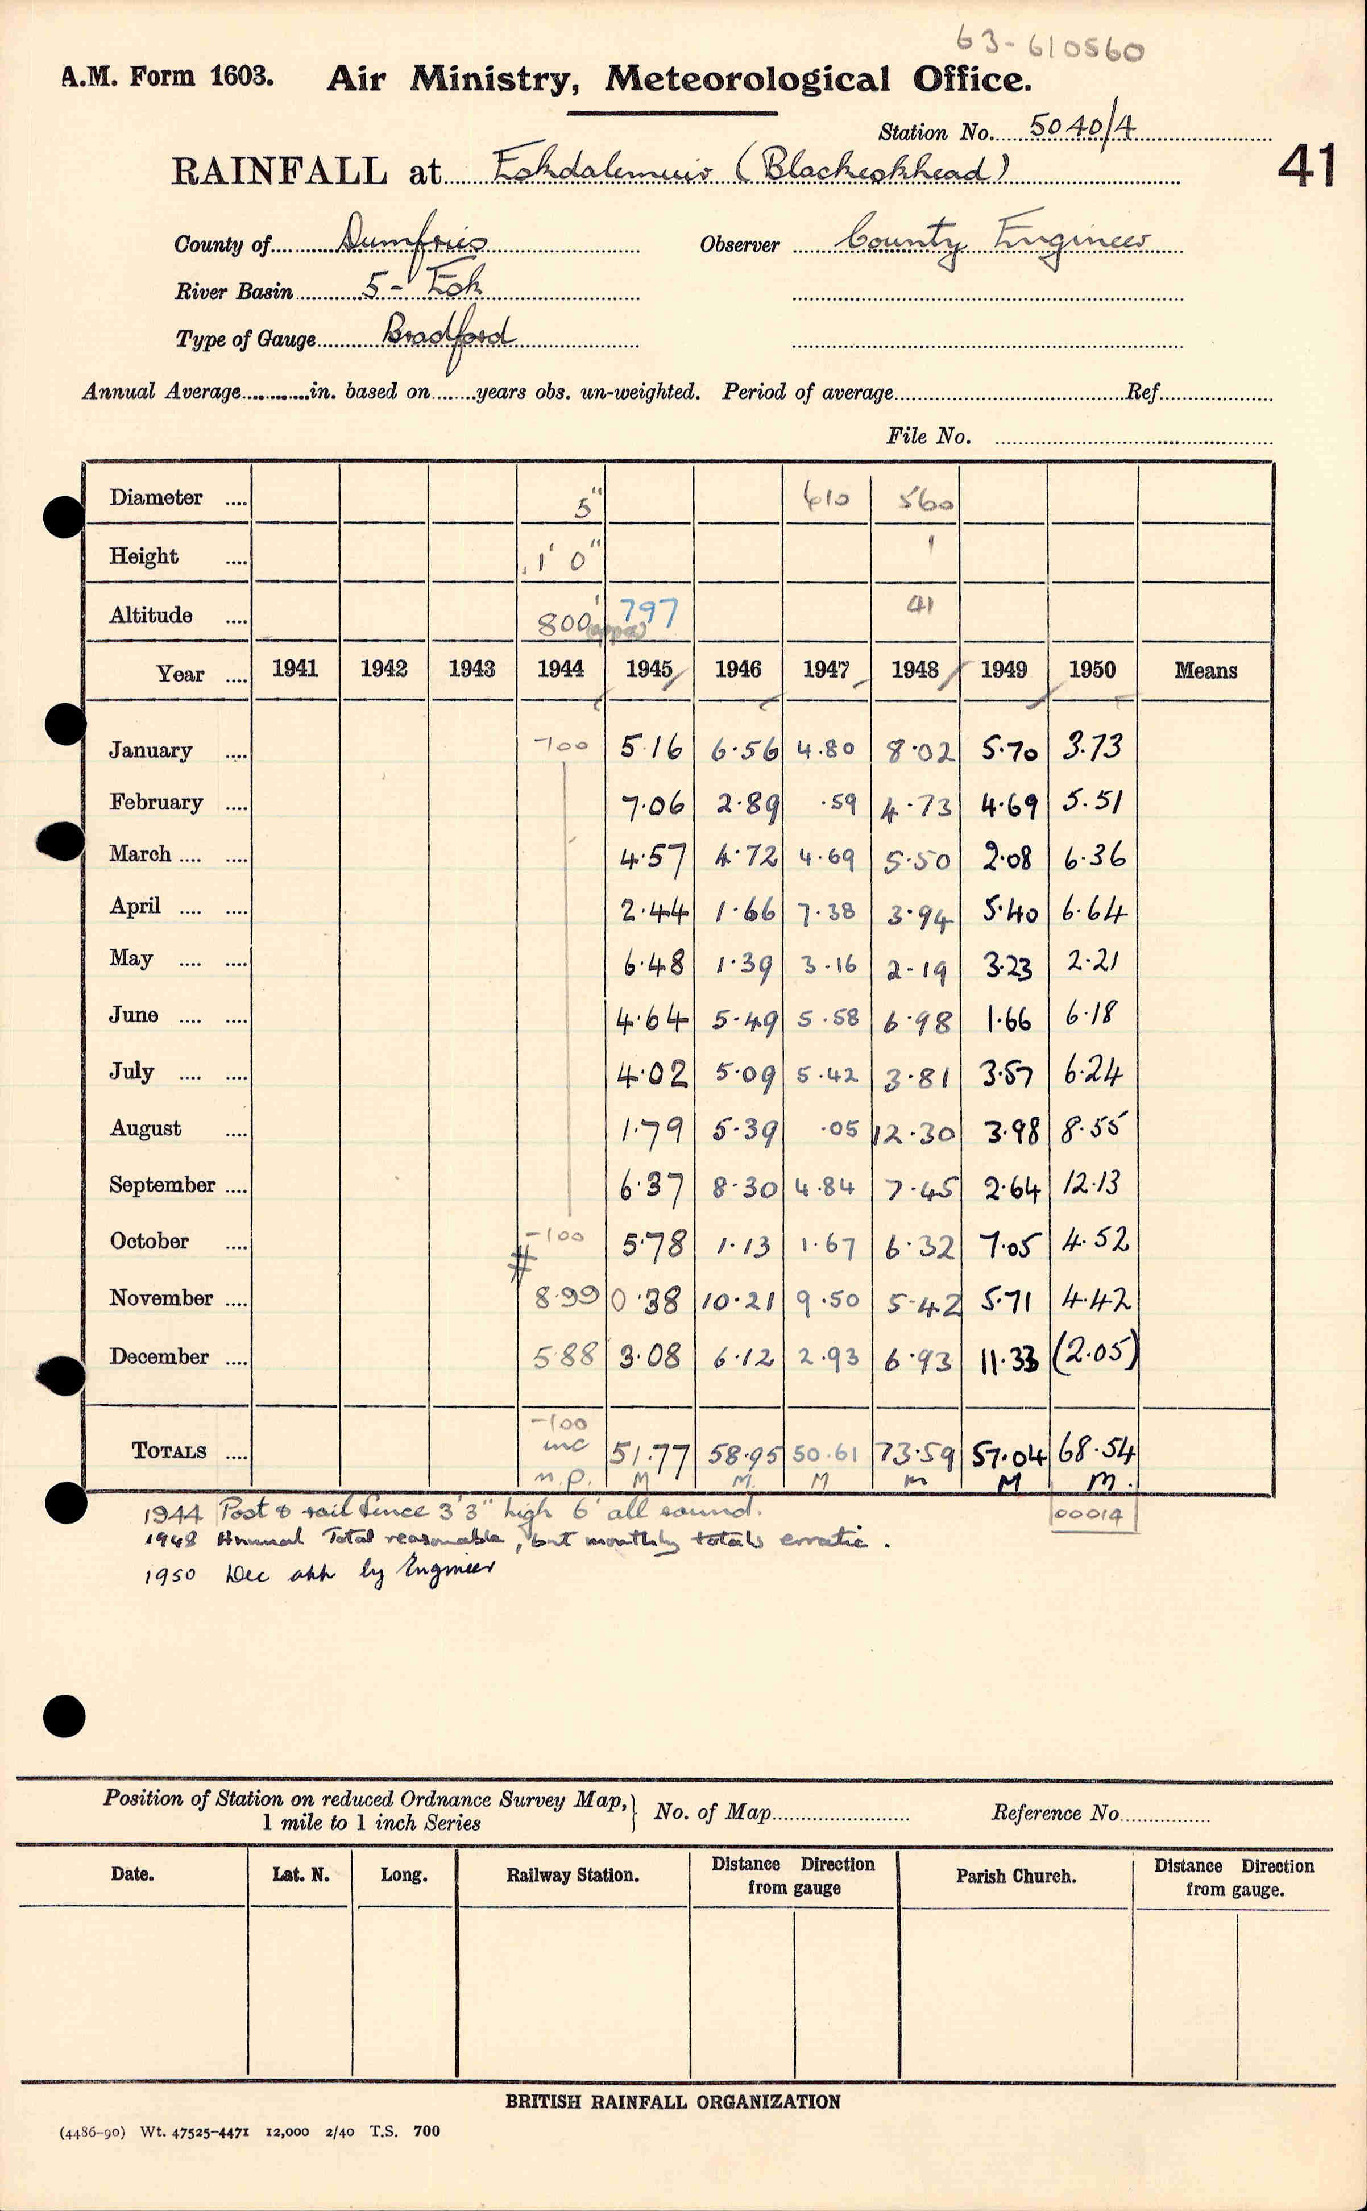 63-610560
A.M. Form 1603. Air Ministry, Meteorological Office.
Station No. 5040/4
41
RAINFALL at Eskdalemuir (Blackeskhead)
County of Dumfries Observer County Engineer
River Basin 5 - Esk
Type of Gauge Bradford
Annual Average in. based on years obs. un-weighted. Period of average Ref
File No.
Diameter .... 5" 610 560
Height .... 1' 0" 1
Altitude .... 800' (appx) 797 41
Year .... 1941 1942 1943 1944 1945 1946 1947 1948 1949 1950 Means
January .... -100 5.16 6.56 4.80 8.02 5.70 3.73
February .... 7.06 2.89 .59 4.73 4.69 5.51
March .... .... 4.57 4.72 4.69 5.50 2.08 6.36
April .... .... 2.44 1.66 7.38 3.94 5.40 6.64
May .... .... 6.48 1.39 3.16 2.19 3.23 2.21
June .... .... 4.64 5.49 5.58 6.98 1.66 6.18
July .... .... 4.02 5.09 5.42 3.81 3.57 6.24
August .... 1.79 5.39 .05 12.30 3.98 8.55
September .... 6.37 8.30 4.84 7.45 2.64 12.13
October .... -100 5.78 1.13 1.67 6.32 7.05 4.52
#
November .... 8.99 0.38 10.21 9.50 5.42 5.71 4.42
December .... 5.88 3.08 6.12 2.93 6.93 11.33 (2.05)
-100
TOTALS .... inc 51.77 58.95 50.61 73.59 57.04 68.54
n.p. M M. M m M m.
1944 Post & rail fence 3'3" high 6' all round. 00014
1948 Annual Total reasonable, but monthly totals erratic.
1950 Dec apx by Engineer
Position of Station on reduced Ordnance Survey Map, No. of Map Reference No.
1 mile to 1 inch Series
Date. Lat. N. Long. Railway Station. Distance Direction from gauge Parish Church. Distance Direction from gauge.
BRITISH RAINFALL ORGANIZATION
(4486-90) Wt. 47525-4471 12,000 2/40 T.S. 700